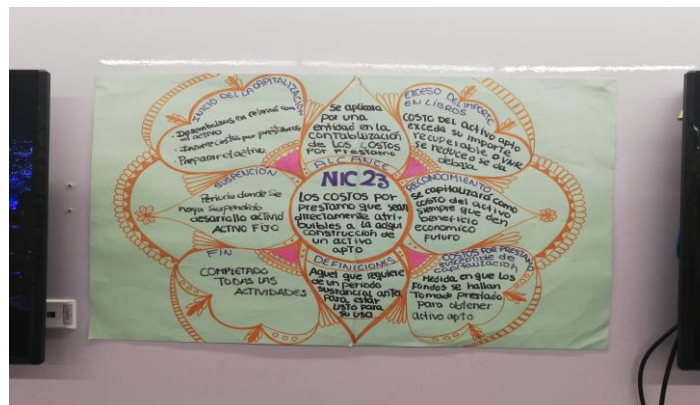 INICIO DEL LA CAPITALIZACIÓN
• Desembolsos en relación con
el activo
• Incurre costos por préstamos
• Preparar el activo.
Se aplicara
por una
entidad en la
contabilización
de los costos
por prestamo
ALCANCE
EXCESO DEL IMPORTE
EN LIBROS
COSTO DEL activo apto
exceda su importe
recuperable o VNR
se reduce o se da
debaja
SUSPENCIÓN
Periodo donde se
haya suspendido
desarrollo activid
ACTIVO FIJO
NIC 23
LOS COSTOS POR
PRESTAMO que sean
directamente atri-
buibles a la adqui
construcción de
un activo
apto
RECONOCIMIENTO
Se capitalizará como
costo del activo
siempre que den
beneficio
economico
futuro
FIN
COMPLETADO
TODAS LAS
ACTIVIDADES
DEFINICIONES
Aquel que requiere
de un periodo
sustancial antes
para estar
listo para
su uso
COSTOS POR PRESTAMO
susceptible de
capitalización
Medida en que los
Fondos se hallan
Tomado prestado
para obtener
activo apto